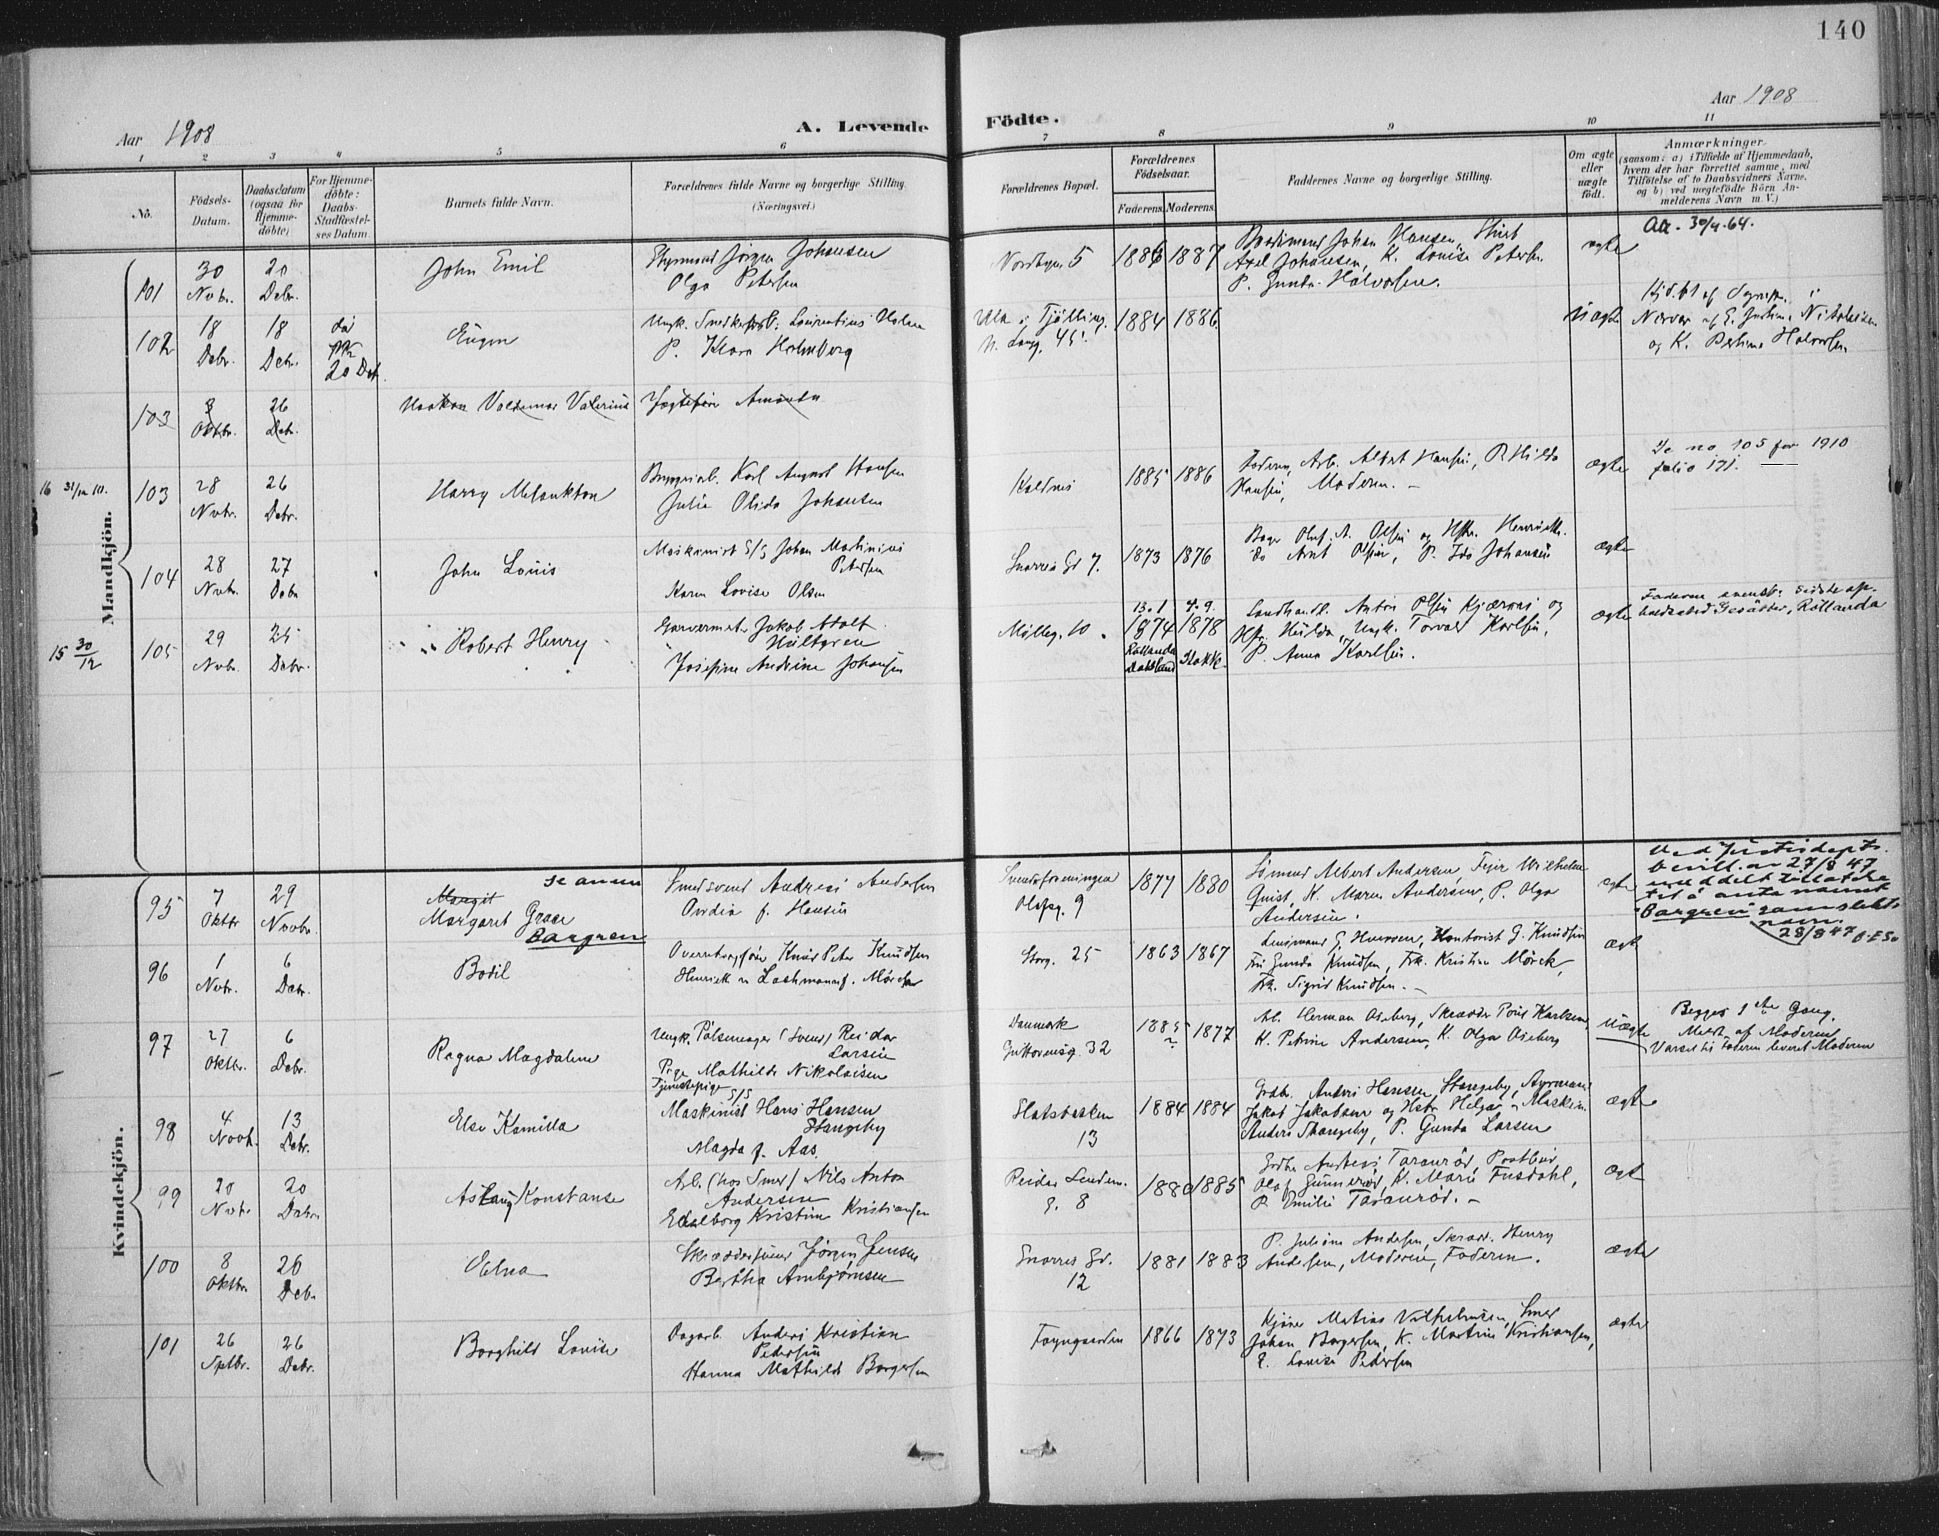 140
Aar 1908
A. Levende
Födte.
Aar 1908
1 2 3 4 5 6 7 8 9 10 11
No.
Födsels-
Datum.
Daabsdatum
(ogsaa for
Hjemme-
döbte)
For Hjemme-
döbte:
Daabs-
Stadfæstel-
ses Datum.
Barnets fulde Navn.
Forældrenes fulde Navne og borgerlige Stilling.
(Næringsvei.)
Forældrenes Bopæl.
Forældrenes
Födselsaar.
Faderens.
Moderens.
Faddernes Navne og borgerlige Stilling.
Om ægte
eller
uægte
födt.
Anmærkninger
(saasom: a) i Tilfælde af Hjemmedaab,
hvem der har forrettet samme, med
Tilföielse af to Daabsvidners Navne,
og b) ved uægtefödte Börn An-
melderens Navn m. V.)
Mandkjön.
101
30
Novbr.
20
Debr.
John Emil
Jörgen Johansen
Olga Petersen
5
1886
1887
Johan Hansen,
Axel Johansen, K. Lovise Petersen
P. Gunda Halvorsen.
ægte
Aa. 30/4.64.
102
18
Debr.
18
Debr.
20 Debr.
Eugen
Ungk. Laurentius Holm
P. Klara Holmberg
Ula i Tjölling.
N. Lang. 45.
1884
1886
Uægte
og K. Halvorsen
103
3
Oktbr.
26
Debr.
Haakon Valdemar Valerius
Amanda
Se no 105 for 1910
folio 171.
16 31/12 10.
103
28
Novbr.
26
Debr.
Harry Melankton
Bryggeriarb. Karl August Hansen
Julie Olida Johansen
Kaldnes
1885
1886
Faderen, Arb. Albert Hansen, P. Hilda
Hansen, Moderen.
ægte
104
28
Novbr.
27
Debr.
John Louis
Maskinist S/S Johan Martinius
Petersen
Karen Lovise Olsen
Snorres Gd 7.
1873
1876
Bager Oluf A. Olsen og Hstr.
Arnt Olsen, P. Ida Johansen
ægte
15 30/12
105
29
Novbr.
25
Debr.
Robert Henry
Garvermester Jakob Adolf
Hultgren
Josefine Andrine Johansen
Mölleg. 10.
13.1
1874
Rollanda
Dalsland
4.9.
1878
Stokke
Landhandl. Anton Olsen Kjærnes og
Hstr. Hulda, Ungk. Torvald Karlsen,
P. Anna Karlsen.
ægte
Faderens svensk: sidste op-
holdssted Rollanda
Kvindekjön.
95
7
Oktbr
29
Novbr.
Margit
se anm
Margaret Grace
Bargren
Smedsvend Andreas Andersen
Ovidia f. Hansen
Svendsforeningen
Olafsg. 9
1877
1880
Sömand Albert Andersen, Wilhelm
Quist, K. Maren Andersen, P. Olga
Andersen.
ægte
Ved Justisdepts
bevill. av 27/8 47
meddelt tillatelse
til å anta navnet
"Bargren" som slekts-
navn.
28/8 47
96
1
Novbr.
6
Debr.
Bodil
Knud Peter Knudsen
Lachmann f. Mörch
Storg. 25
1863
1867
Kontorist G. Knudsen
Fru Gunda Knudsen, Frk. Kristine Mörck,
Frk. Sigrid Knudsen.
ægt
97
27
Oktbr.
6
Debr.
Ragna Magdalene
Ungk. Pölsemager (Svend) Reidar
Larsen
Pige Mathilde Nikolaisen
Tjenestepige
Danmark
32
1885
1877
Arb. Herman Oseberg, Skrædder Karlsen,
K. Petrine Andersen, K. Olga Oseberg
Uægte
Begges 1ste Gang.
Meldt af Moderen.
Varsel til Faderen leveret Moderen
98
4
Novbr.
13
Debr.
Else Kamilla
Maskinist S/S Hans Hansen
Stangeby
Magda f. Aas.
Slotsbakken
13
1884
1884
Grdbr. Anders Hansen Stangeby, Styrmand
Jakob Jakobsen og Hstr. Helga, Maskin.
Anders Stangeby, P. Gunda Larsen
ægte
99
20
Novbr.
20
Debr.
Aslaug Konstanse
Arb. (hos Smed) Nils Anton
Andersen
Edelborg Kristine Kristiansen
Reidar
G. 8
1880
1885
Grdbr Andreas Taranröd, Postbud
Olaf Gunneröd, K. Marie Fusdahl,
P. Emilie Taranröd.
ægt
100
8
Oktbr.
26
Debr
Edna
Skræddersvend Jörgen Jensen
Bertha Arnbjörnsen
Snorres Gd.
12
1881
1883
P. Juliane Andersen, Skræd. Henry
Andersen, Moderen, Faderen.
ægte
101
26
Sptbr.
26
Debr.
Borghild Lovise
Dagarb. Anders Kristian
Pedersen
Hanna Mathilde Borgersen
1866
1873
Mathias Vilhelmsen, Smed
Johan Borgersen, K. Martine Kristiansen,
E. Lovise Pedersen
ægte